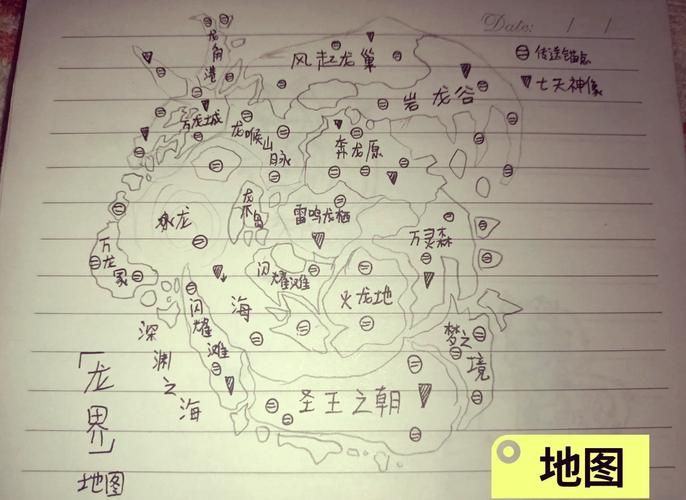 Date: / /
传送锚点
七天神像
龙角港
风起龙巢
岩龙谷
万龙城
龙喉山
奔龙原
龙
岛
雷鸣龙栖
水龙
万灵森
万龙冢
闪耀滩
火龙地
闪耀滩
海
梦之境
深渊之海
圣王之朝
「龙界」
地图
地图